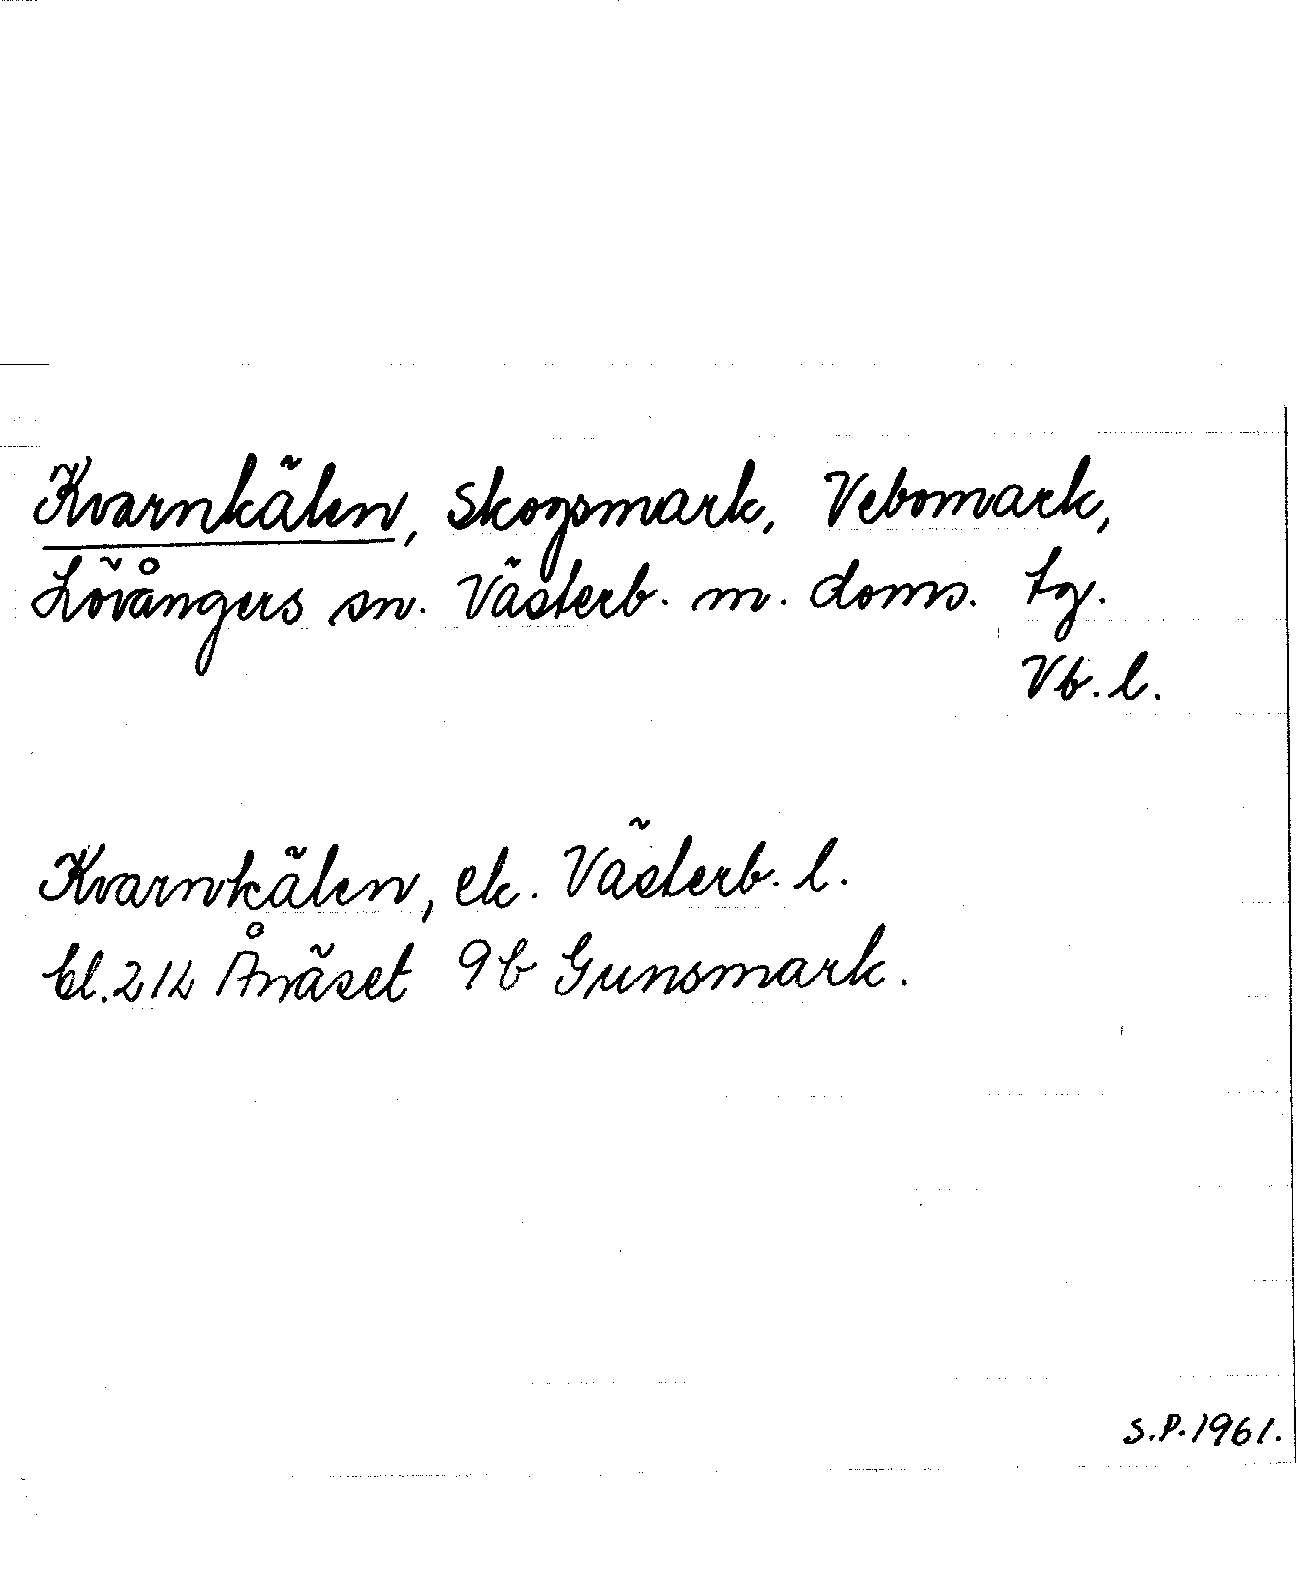 Kvarnkälen, Skogsmark, Vebomark,
Lövångers sn. Västerb. m. doms. tg.
Vb. l.
Kvarnkälen, ek. Västerb. l.
bl. 21L Ånäset 9b Gunsmark.
S.P. 1961.